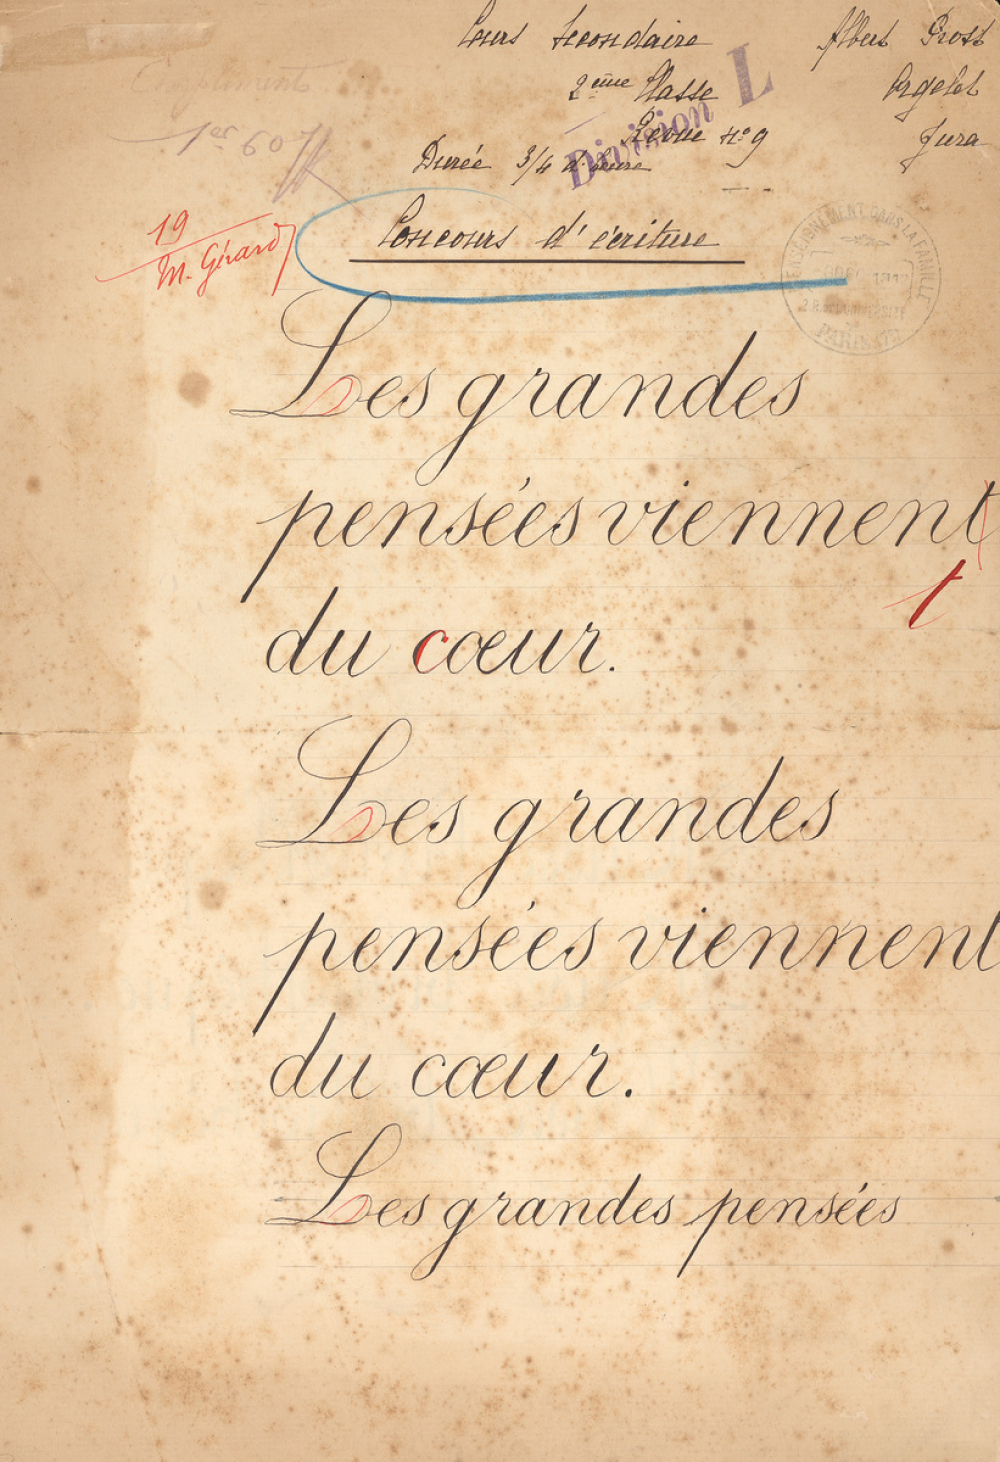 Cours Secondaire
Albert Prost
2ème Classe
Orgelet
Division L
Revue n° 9
Jura
Durée 3/4 d'heure
1er 60
19
M. Gérard
Concours d'écriture
ENSEIGNEMENT DANS LA FAMILLE
PARIS
Les grandes
pensées viennent
t
du cœur.
Les grandes
pensées viennent
du cœur.
Les grandes pensées